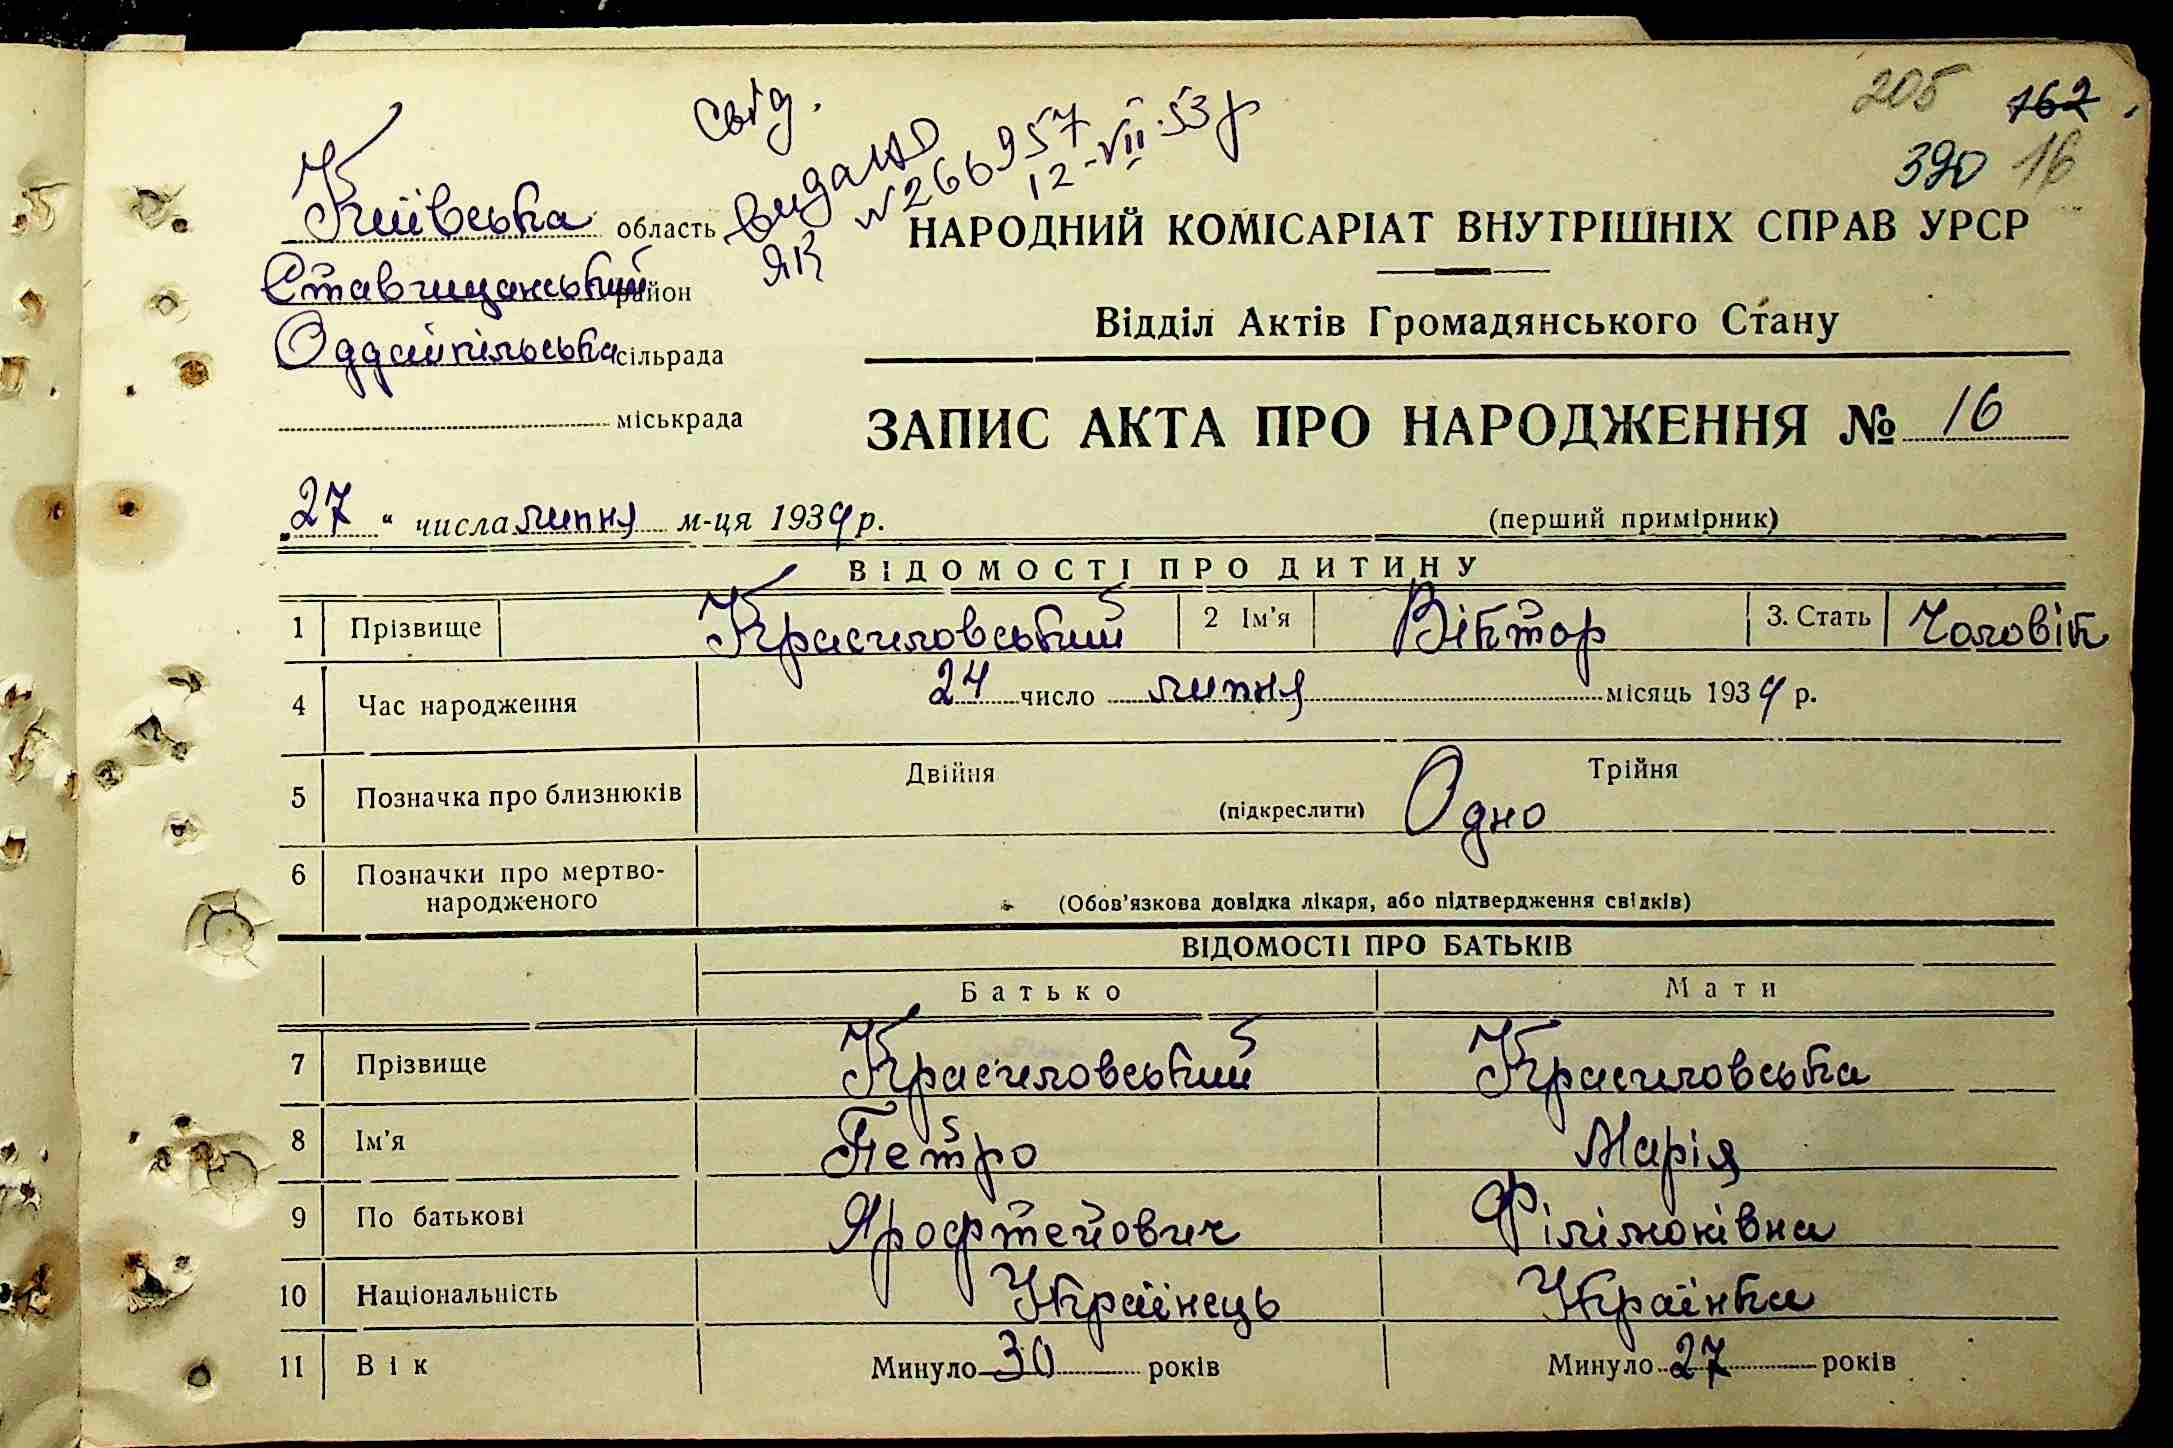 205 162.
390 16
Свід.
видано
ЯК №266957
12-VII-53р
Київська область
Ставищанський район
сільрада
міськрада
НАРОДНИЙ КОМІСАРІАТ ВНУТРІШНІХ СПРАВ УРСР
Відділ Актів Громадянського Стану
ЗАПИС АКТА ПРО НАРОДЖЕННЯ № 16
„27“ числа липня м-ця 1939 р.
(перший примірник)
ВІДОМОСТІ ПРО ДИТИНУ
1 Прізвище Красиловський 2 Ім'я Віктор 3. Стать Чоловік
4 Час народження 24 число липня місяць 1939 р.
5 Позначка про близнюків Двійня (підкреслити) Трійня Одно
6 Позначки про мертво-
народженого (Обов'язкова довідка лікаря, або підтвердження свідків)
ВІДОМОСТІ ПРО БАТЬКІВ
Батько Мати
7 Прізвище Красиловський Красиловська
8 Ім'я Петро Марія
9 По батькові Ярофтейович Філімонівна
10 Національність Українець Українка
11 Вік Минуло 30 років Минуло 27 років